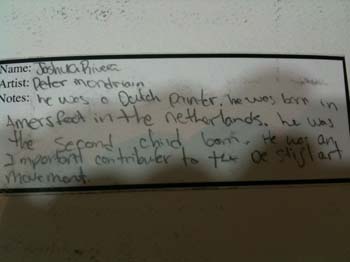 Name: Joshua Rivera
Artist: Peter mondriain
Notes: he was a Dutch painter. he was born in
Amersfoot in the netherlands. he was
the second child born. He was an
Important contributer to the De stijl art
movement.